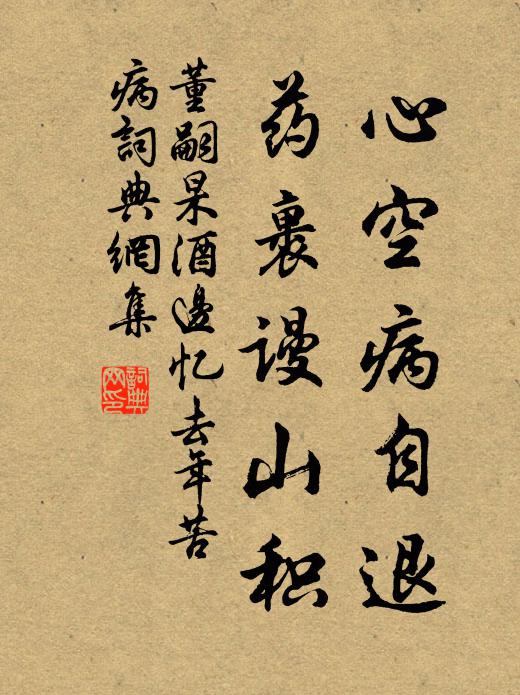 心空病自退
药裹谩山积
董嗣杲酒邊忆去年苦
病詞典網集
詞典網印